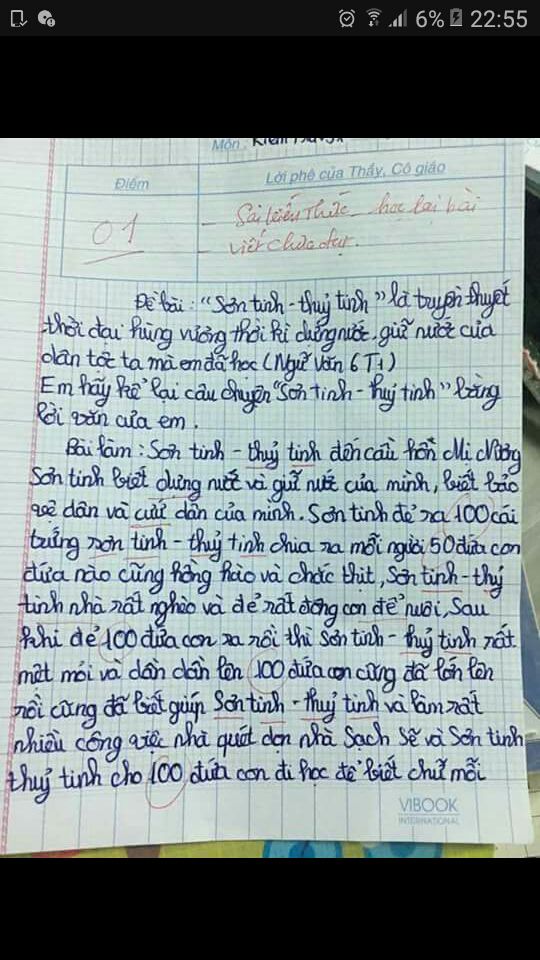 6% 22:55
Môn:
Điểm
Lời phê của Thầy, Cô giáo
01
- Sai kiến thức - học lại bài
- viết chưa đạt.
Đề bài: "Sơn tinh - thuỷ tinh" là truyền thuyết
thời đại hùng vương thời kì dựng nước, giữ nước của
dân tộc ta mà em đã học (Ngữ văn 6 T1)
Em hãy kể lại câu chuyện "Sơn tinh - thuỷ tinh" bằng
lời văn của em.
Bài làm: Sơn tinh - thuỷ tinh đến cầu hôn Mị Nương
Sơn tinh biết dựng nước và giữ nước của mình, biết bảo
vệ dân và cứu dân của mình. Sơn tinh đẻ ra 100 cái
trứng sơn tinh - thuỷ tinh chia ra mỗi người 50 đứa con
đứa nào cũng hồng hào và chắc thịt, Sơn tinh - thuỷ
tinh nhà rất nghèo và đẻ rất đông con để nuôi, Sau
khi đẻ 100 đứa con ra rồi thì Sơn tinh - thuỷ tinh rất
mệt mỏi và dần dần lên 100 đứa con cũng đã lớn lên
rồi cũng đã biết giúp Sơn tinh - thuỷ tinh và làm rất
nhiều công việc nhà quét dọn nhà Sạch Sẽ và Sơn tinh
thuỷ tinh cho 100 đứa con đi học để biết chữ mỗi
VIBOOK
INTERNATIONAL